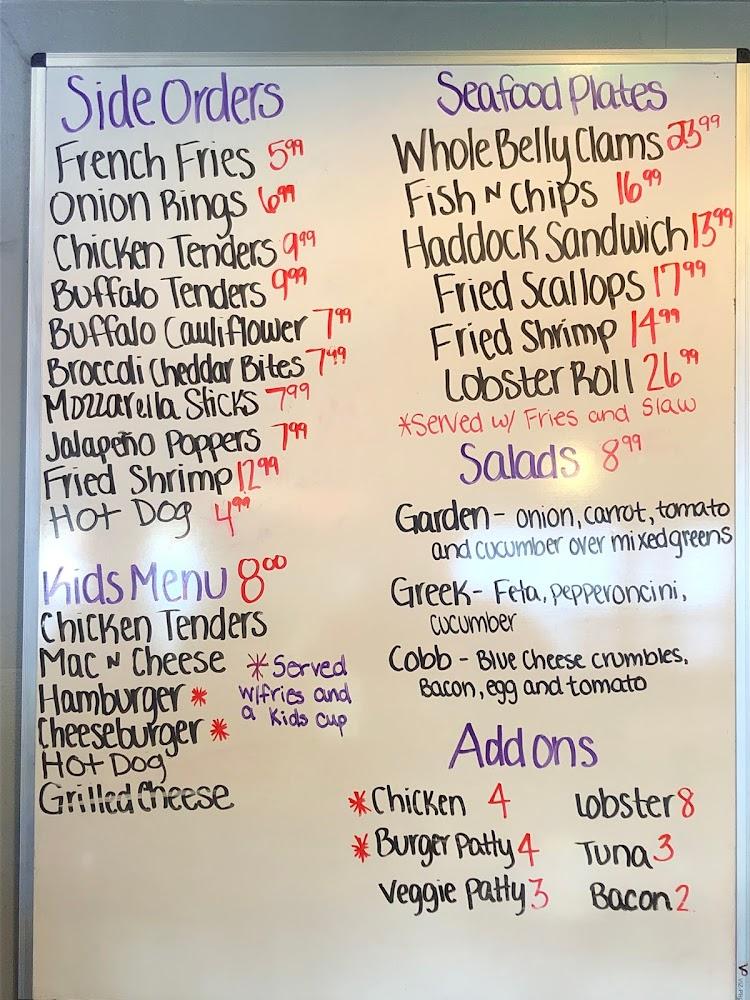 Side Orders
French Fries 5.99
Onion Rings 6.99
Chicken Tenders 9.99
Buffalo Tenders 9.99
Buffalo Cauliflower 7.99
Broccoli Cheddar Bites 7.99
Mozzarella Sticks 7.99
Jalapeño Poppers 7.99
Fried Shrimp 12.99
Hot Dog 4.99
Kids Menu 8.00
Chicken Tenders
Mac N Cheese
Hamburger *
Cheeseburger *
Hot Dog
Grilled Cheese
* Served
w/fries and
a Kids cup
Seafood Plates
Whole Belly Clams 23.99
Fish N Chips 16.99
Haddock Sandwich 13.99
Fried Scallops 17.99
Fried Shrimp 14.99
Lobster Roll 26.99
*Served w/ Fries and Slaw
Salads 8.99
Garden - onion, carrot, tomato
and cucumber over mixed greens
Greek - Feta, pepperoncini,
cucumber
Cobb - Blue Cheese crumbles,
Bacon, egg and tomato
Add ons
*Chicken 4
*Burger Patty 4
Veggie Patty 3
Lobster 8
Tuna 3
Bacon 2